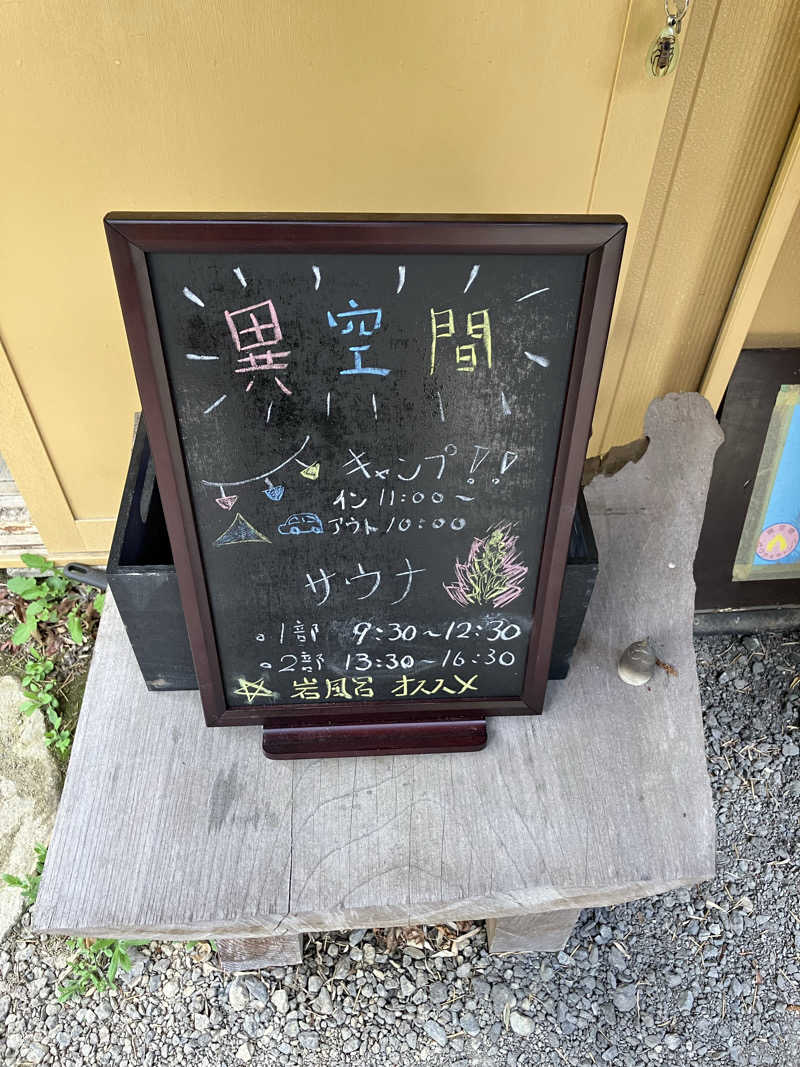 異空間
キャンプ!!
イン 11:00〜
アウト 10:00
サウナ
。1部 9:30〜12:30
。2部 13:30〜16:30
☆ 岩風呂 オススメ